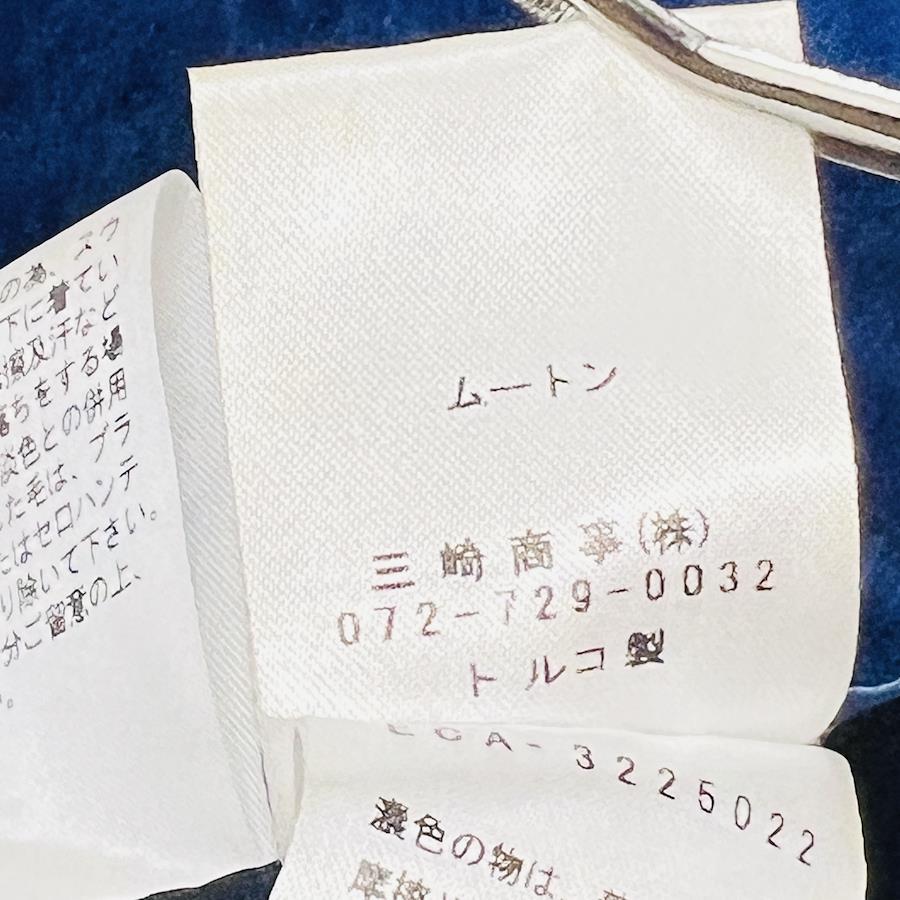 の為、スウ
下に着てい
擦及汗など
落ちをする場
淡色との併用
た毛は、ブラ
はセロハンテ
り除いて下さい。
分ご留意の上、
。
ムートン
三崎商事(株)
072-729-0032
トルコ製
ECA-3225022
濃色の物は、
摩擦